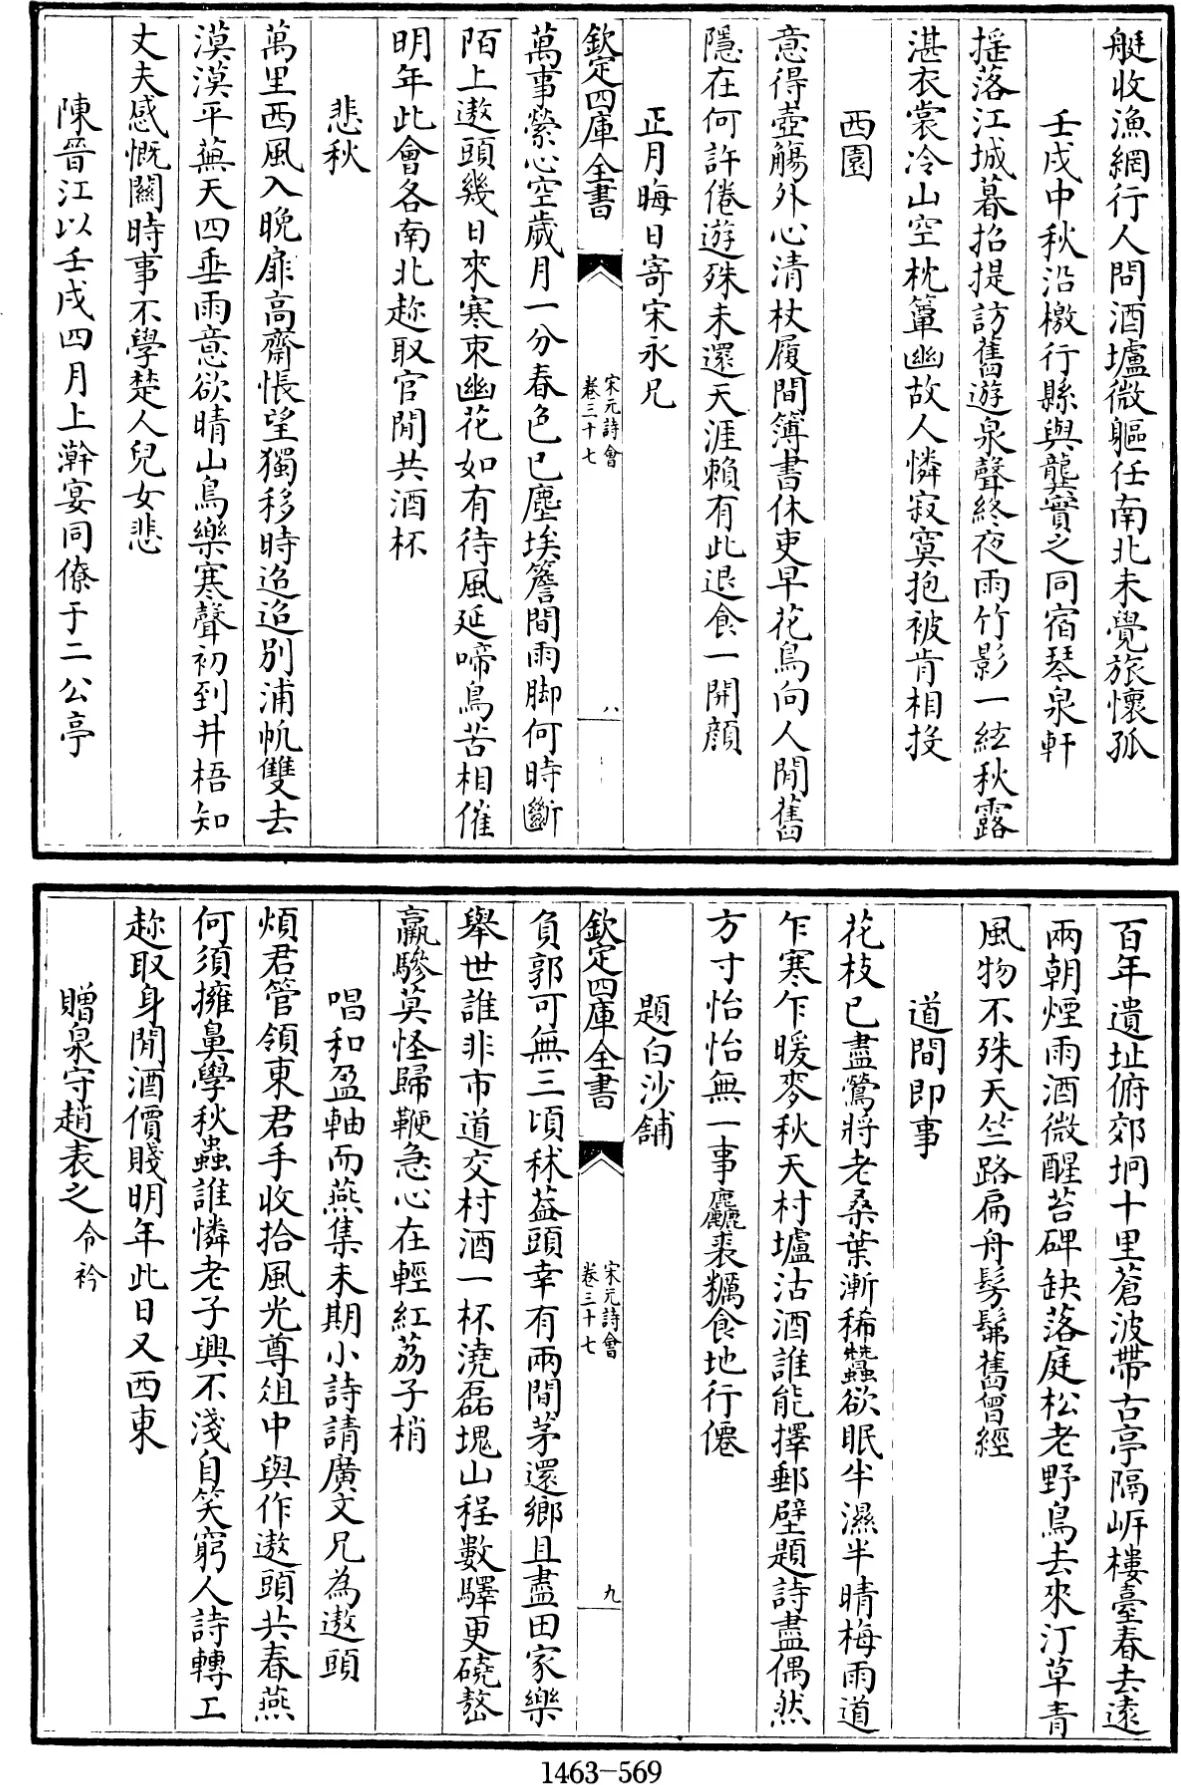 艇收漁網行人問酒壚微軀任南北未覺旅懷孤
壬戌中秋沿檄行縣與龔實之同宿琴泉軒
揺落江城暮招提訪舊遊泉聲終夜雨竹影一絃秋露
湛衣裳冷山空枕簟幽故人憐寂寞抱被肯相投
西園
意得壺觴外心清杖履間簿書休吏早花鳥向人閒舊
隱在何許倦遊殊未還天涯賴有此退食一開顔
正月晦日寄宋永兄
欽定四庫全書
宋元詩會
卷三十七
八
萬事縈心空歲月一分春色已塵埃簷間雨脚何時斷
陌上遨頭幾日來寒朿幽花如有待風延啼鳥苦相催
明年此會各南北趂取官閒共酒杯
悲秋
萬里西風入晩扉高齋悵望獨移時迢迢别浦帆雙去
漠漠平蕪天四垂雨意欲晴山鳥樂寒聲初到井梧知
丈夫感慨關時事不學楚人兒女悲
陳晉江以壬戌四月上澣宴同僚于二公亭
百年遺址俯郊坰十里蒼波帶古亭隔㟁樓臺春去遠
兩朝煙雨酒微醒苔碑缺落庭松老野鳥去來汀草青
風物不殊天竺路扁舟髣髴舊曾經
道間即事
花枝已盡鶯將老桑葉漸稀蠶欲眠半濕半晴梅雨道
乍寒乍暖麥秋天村壚沽酒誰能擇郵壁題詩盡偶然
方寸怡怡無一事麤裘糲食地行僊
題白沙舖
欽定四庫全書
宋元詩會
卷三十七
九
負郭可無三頃秫葢頭幸有兩間茅還鄉且盡田家樂
舉世誰非市道交村酒一杯澆磊塊山程數驛更磽嶅
羸驂莫怪歸鞭急心在輕紅荔子梢
唱和盈軸而燕集未期小詩請廣文兄為遨頭
煩君管領東君手收拾風光尊俎中與作遨頭共春燕
何須擁鼻學秋蟲誰憐老子興不淺自笑窮人詩轉工
趂取身閒酒價賤明年此日又西東
贈泉守趙表之令衿
1463-569